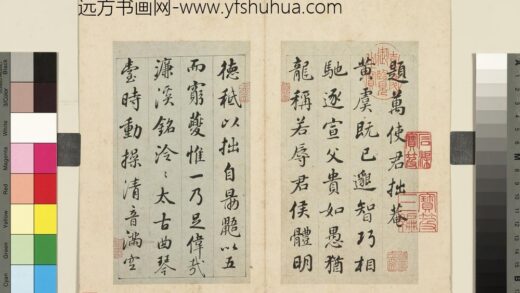 远方书画网-www.yfshuhua.com
題萬使君拙菴
黃虞既已邈智巧相
馳逐宣父貴如愚猶
龍稱若辱君侯體明
德秪以拙自勗鼯以五
而窮夔惟一乃足偉哉
濂溪銘泠泠太古曲琴
臺時動操清音滿空